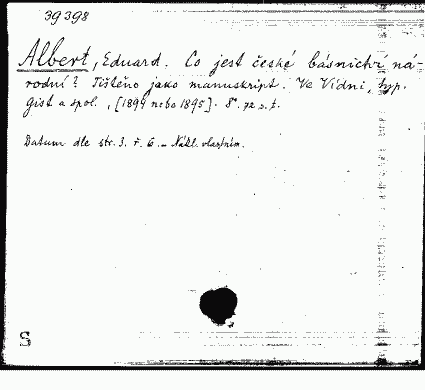 39398
Albert, Eduard. Co jest české básnictví ná-
rodní? Tištěno jako manuskript. Ve Vídni, typ.
Gist a spol., [1894 nebo 1895]. 8°. 72 s. t.
Datum dle str. 3. ř. 6. – Nákl. vlastním.
S